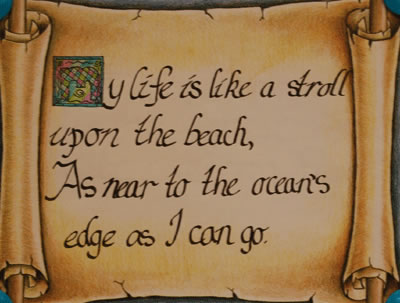 My life is like a stroll
upon the beach,
As near to the ocean's
edge as I can go.